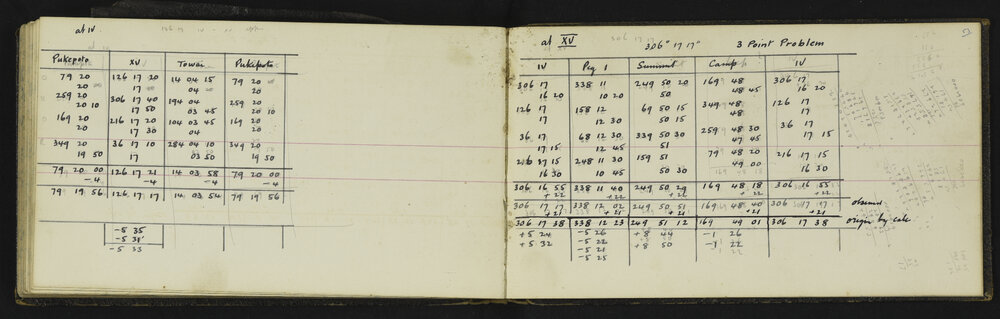 at IV
Pukepoto XV Towai Pukepoto
79 20 126 17 20 14 04 15 79 20
20 17 04 20
259 20 306 17 40 194 04 259 20
20 10 17 50 03 45 20 10
169 20 216 17 20 104 03 45 169 20
20 17 30 04 20
349 20 36 17 10 284 04 10 349 20
19 50 17 03 50 19 50
79 20 00 126 17 21 14 03 58 79 20 00
-4 -4 -4 -4
79 19 56 126 17 17 14 03 54 79 19 56
-5 35
-5 31
-5 33
at XV 306° 17' 17" 3 Point Problem
IV Peg 1 Summit Camp IV
306 17 338 11 249 50 20 169 48 306 17
16 20 10 20 50 48 45 16 20
126 17 158 12 69 50 15 349 48 126 17
17 12 30 50 15 48 17
36 17 68 12 30 339 50 30 259 48 30 36 17
17 15 12 45 51 47 45 17 15
216 17 15 248 11 30 159 51 79 48 20 216 17 15
16 30 10 45 50 30 49 00 16 30
306 16 55 338 11 40 249 50 29 169 48 18 306 16 55
+22 +22 +22 +22 +22
306 17 17 338 12 02 249 50 51 169 48 40 306 17 17 observed
+21 +21 +21 +21 +21
306 17 38 338 12 23 249 51 12 169 49 01 306 17 38 origin by calc
+5 24 -5 26 +8 44 -1 26
+5 32 -5 22 +8 50 -1 22
-5 21 22
-5 25